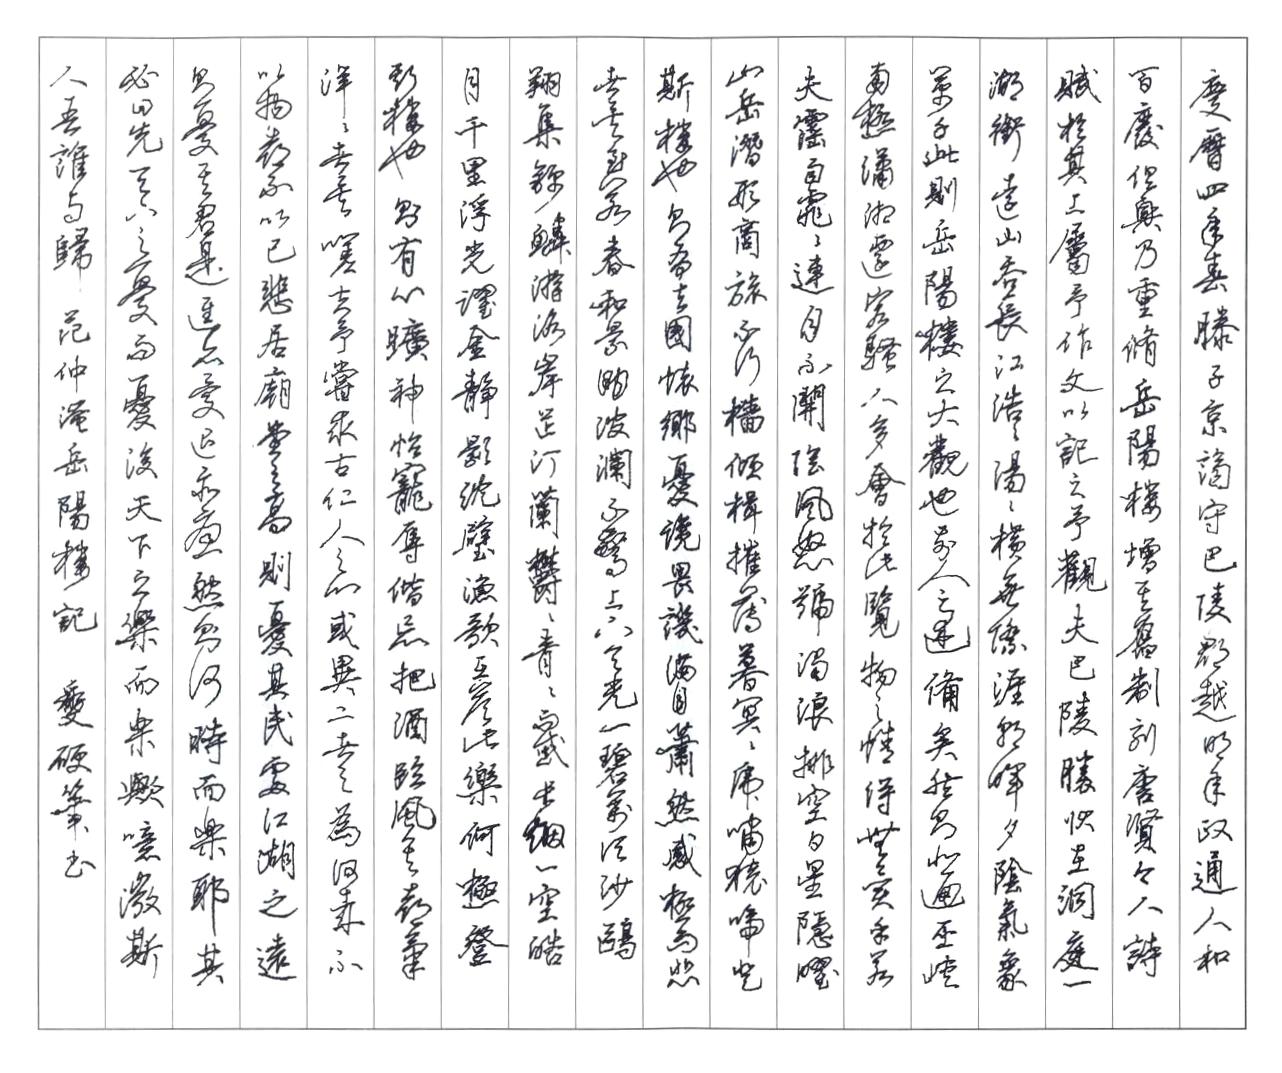 慶曆四年春滕子京謫守巴陵郡越明年政通人和
百廢俱興乃重脩岳陽樓增其舊制刻唐賢今人詩
賦於其上屬予作文以記之予觀夫巴陵勝狀在洞庭一
湖銜遠山吞長江浩浩湯湯橫無際涯朝暉夕陰氣象
萬千此則岳陽樓之大觀也前人之述備矣然則北通巫峽
南極瀟湘遷客騷人多會於此覽物之情得無異乎若
夫霪雨霏霏連月不開陰風怒號濁浪排空日星隱曜
山岳潛形商旅不行檣傾楫摧薄暮冥冥虎嘯猿啼登
斯樓也則有去國懷鄉憂讒畏譏滿目蕭然感極而悲
者矣至若春和景明波瀾不驚上下天光一碧萬頃沙鷗
翔集錦鱗游泳岸芷汀蘭鬱鬱青青而或長烟一空皓
月千里浮光躍金靜影沉璧漁歌互答此樂何極登
斯樓也則有心曠神怡寵辱偕忘把酒臨風其喜氣
洋洋者矣嗟夫予嘗求古仁人之心或異二者之為何哉不
以物喜不以己悲居廟堂之高則憂其民處江湖之遠
則憂其君是進亦憂退亦憂然則何時而樂耶其
必曰先天下之憂而憂後天下之樂而樂歟噫微斯
人吾誰與歸 范仲淹岳陽樓記 硬筆書